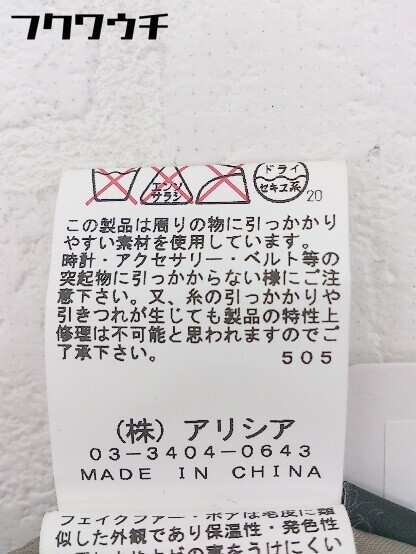 フクワウチ
エンソ
サラシ
ドライ
セキユ系
20
この製品は周りの物に引っかかり
やすい素材を使用しています。
時計・アクセサリー・ベルト等の
突起物に引っかからない様にご注
意下さい。又、糸の引っかかりや
引きつれが生じても製品の特性上
修理は不可能と思われますのでご
了承下さい。 505
(株) アリシア
03-3404-0643
MADE IN CHINA
フェイクファー・ボアは毛皮に類
似した外観であり保温性・発色性